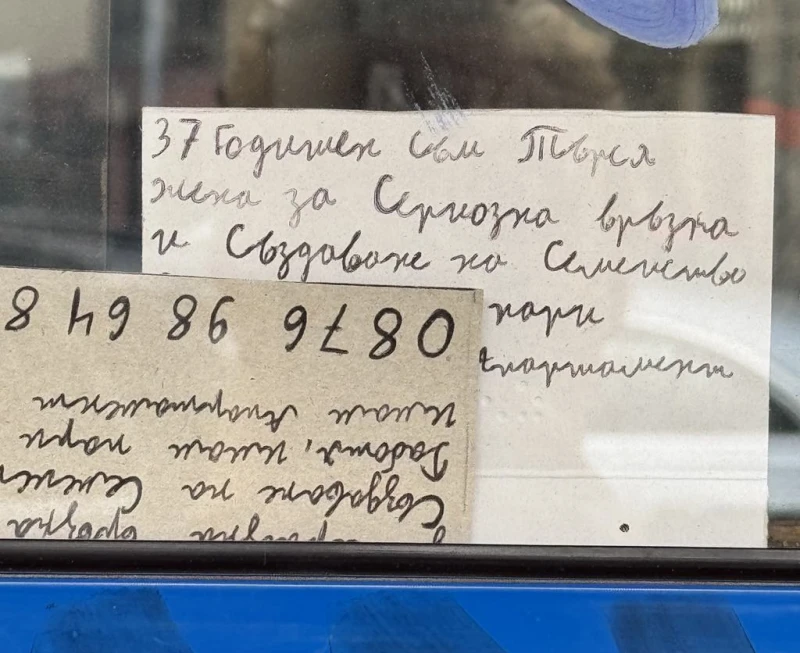 37 Годишен съм Търся
жена за Сериозна връзка
и Създаване на Семейство
пари
Апартамент
0876 98 64 8
имам Апартамент
Работя, имам пари
Създаване на Семей
връзка